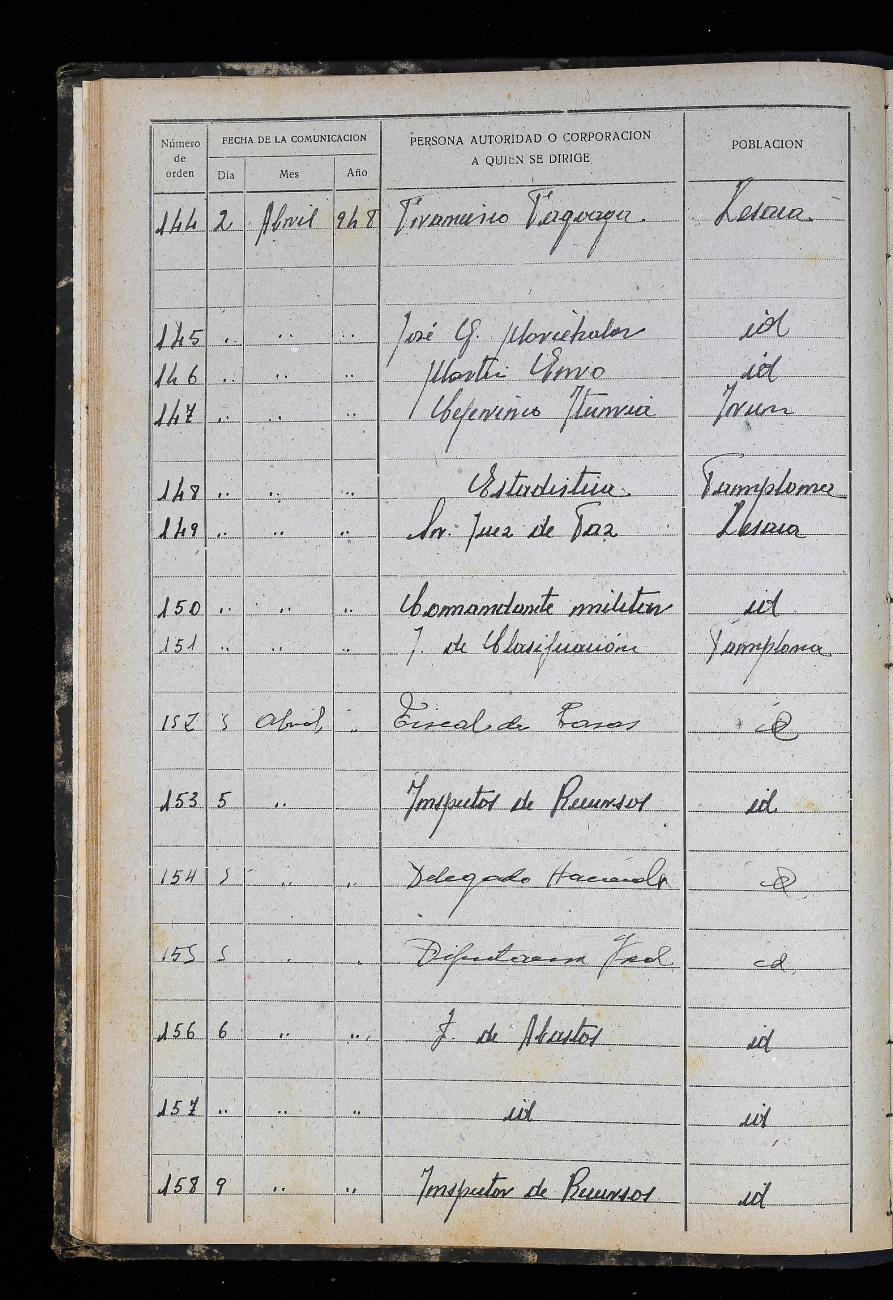 Número de orden FECHA DE LA COMUNICACION PERSONA AUTORIDAD O CORPORACION A QUIEN SE DIRIGE POBLACION
Día Mes Año
144 2 Abril 948 Francisco Lesaca
145 .. .. .. José G. id
146 .. .. .. Martín id
147 .. .. .. Ceferino Iturria Irun
148 .. .. .. Estadistica Pamplona
149 .. .. .. Sr. Juez de Paz Lesaca
150 .. .. .. Comandante militar id
151 .. .. .. J. de Clasificación Pamplona
152 5 Abril .. Fiscal de Tasas id
153 5 .. Inspector de Recursos id
154 5 .. .. Delegado Hacienda id
155 5 . . Diputacion id
156 6 .. .. J. de Abastos id
157 .. .. .. id id
158 9 .. .. Inspector de Recursos id